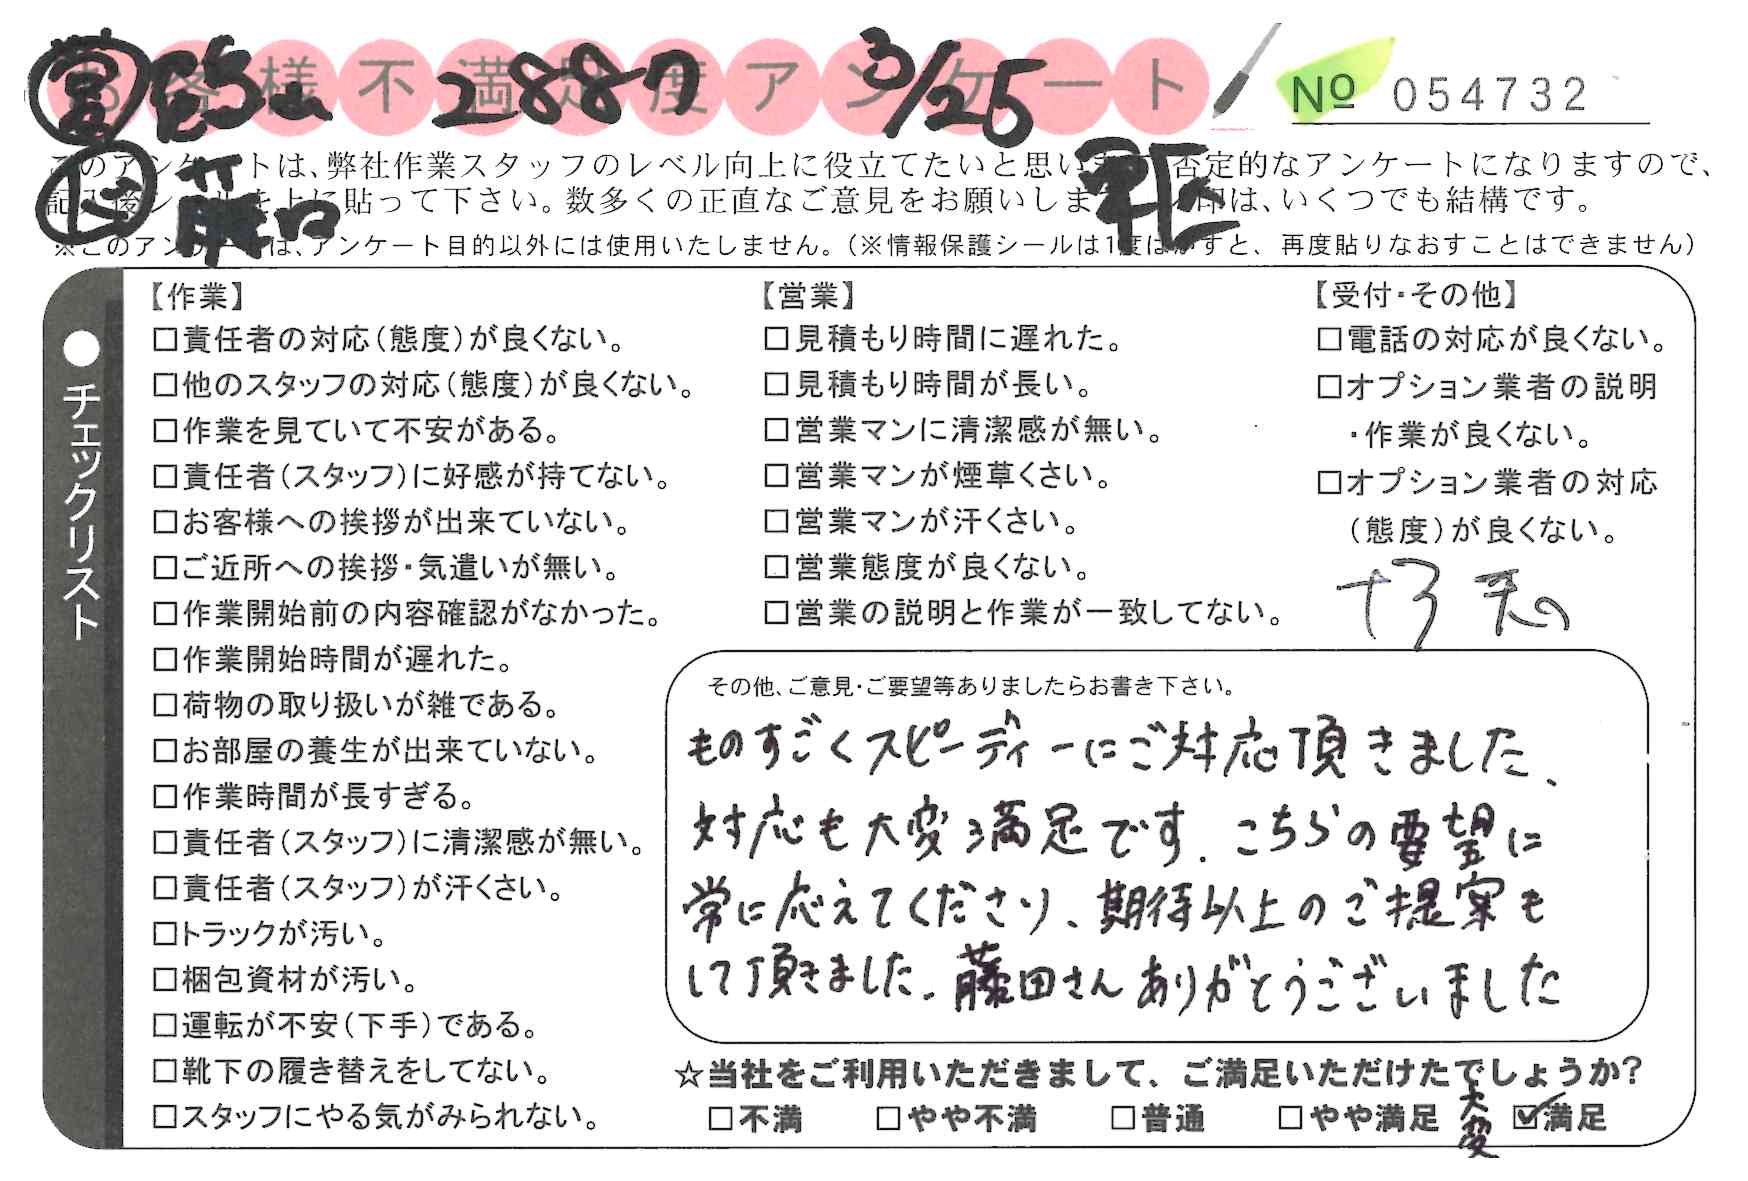 お客様不満足度アンケート
2887 3/25
№ 054732
このアンケートは、弊社作業スタッフのレベル向上に役立てたいと思います。否定的なアンケートになりますので、
記入後シールを上に貼って下さい。数多くの正直なご意見をお願いします。レ印は、いくつでも結構です。
※このアンケートは、アンケート目的以外には使用いたしません。（※情報保護シールは1度はがすと、再度貼りなおすことはできません）
●チェックリスト
【作業】
□責任者の対応（態度）が良くない。
□他のスタッフの対応（態度）が良くない。
□作業を見ていて不安がある。
□責任者（スタッフ）に好感が持てない。
□お客様への挨拶が出来ていない。
□ご近所への挨拶・気遣いが無い。
□作業開始前の内容確認がなかった。
□作業開始時間が遅れた。
□荷物の取り扱いが雑である。
□お部屋の養生が出来ていない。
□作業時間が長すぎる。
□責任者（スタッフ）に清潔感が無い。
□責任者（スタッフ）が汗くさい。
□トラックが汚い。
□梱包資材が汚い。
□運転が不安（下手）である。
□靴下の履き替えをしてない。
□スタッフにやる気がみられない。
【営業】
□見積もり時間に遅れた。
□見積もり時間が長い。
□営業マンに清潔感が無い。
□営業マンが煙草くさい。
□営業マンが汗くさい。
□営業態度が良くない。
□営業の説明と作業が一致してない。
【受付・その他】
□電話の対応が良くない。
□オプション業者の説明
・作業が良くない。
□オプション業者の対応
（態度）が良くない。
その他、ご意見・ご要望等ありましたらお書き下さい。
ものすごくスピーディーにご対応頂きました、
対応も大変満足です。こちらの要望に
常に応えてくださり、期待以上のご提案も
して頂きました。藤田さんありがとうございました
☆当社をご利用いただきまして、ご満足いただけたでしょうか？
□不満 □やや不満 □普通 □やや満足 大変 ☑満足